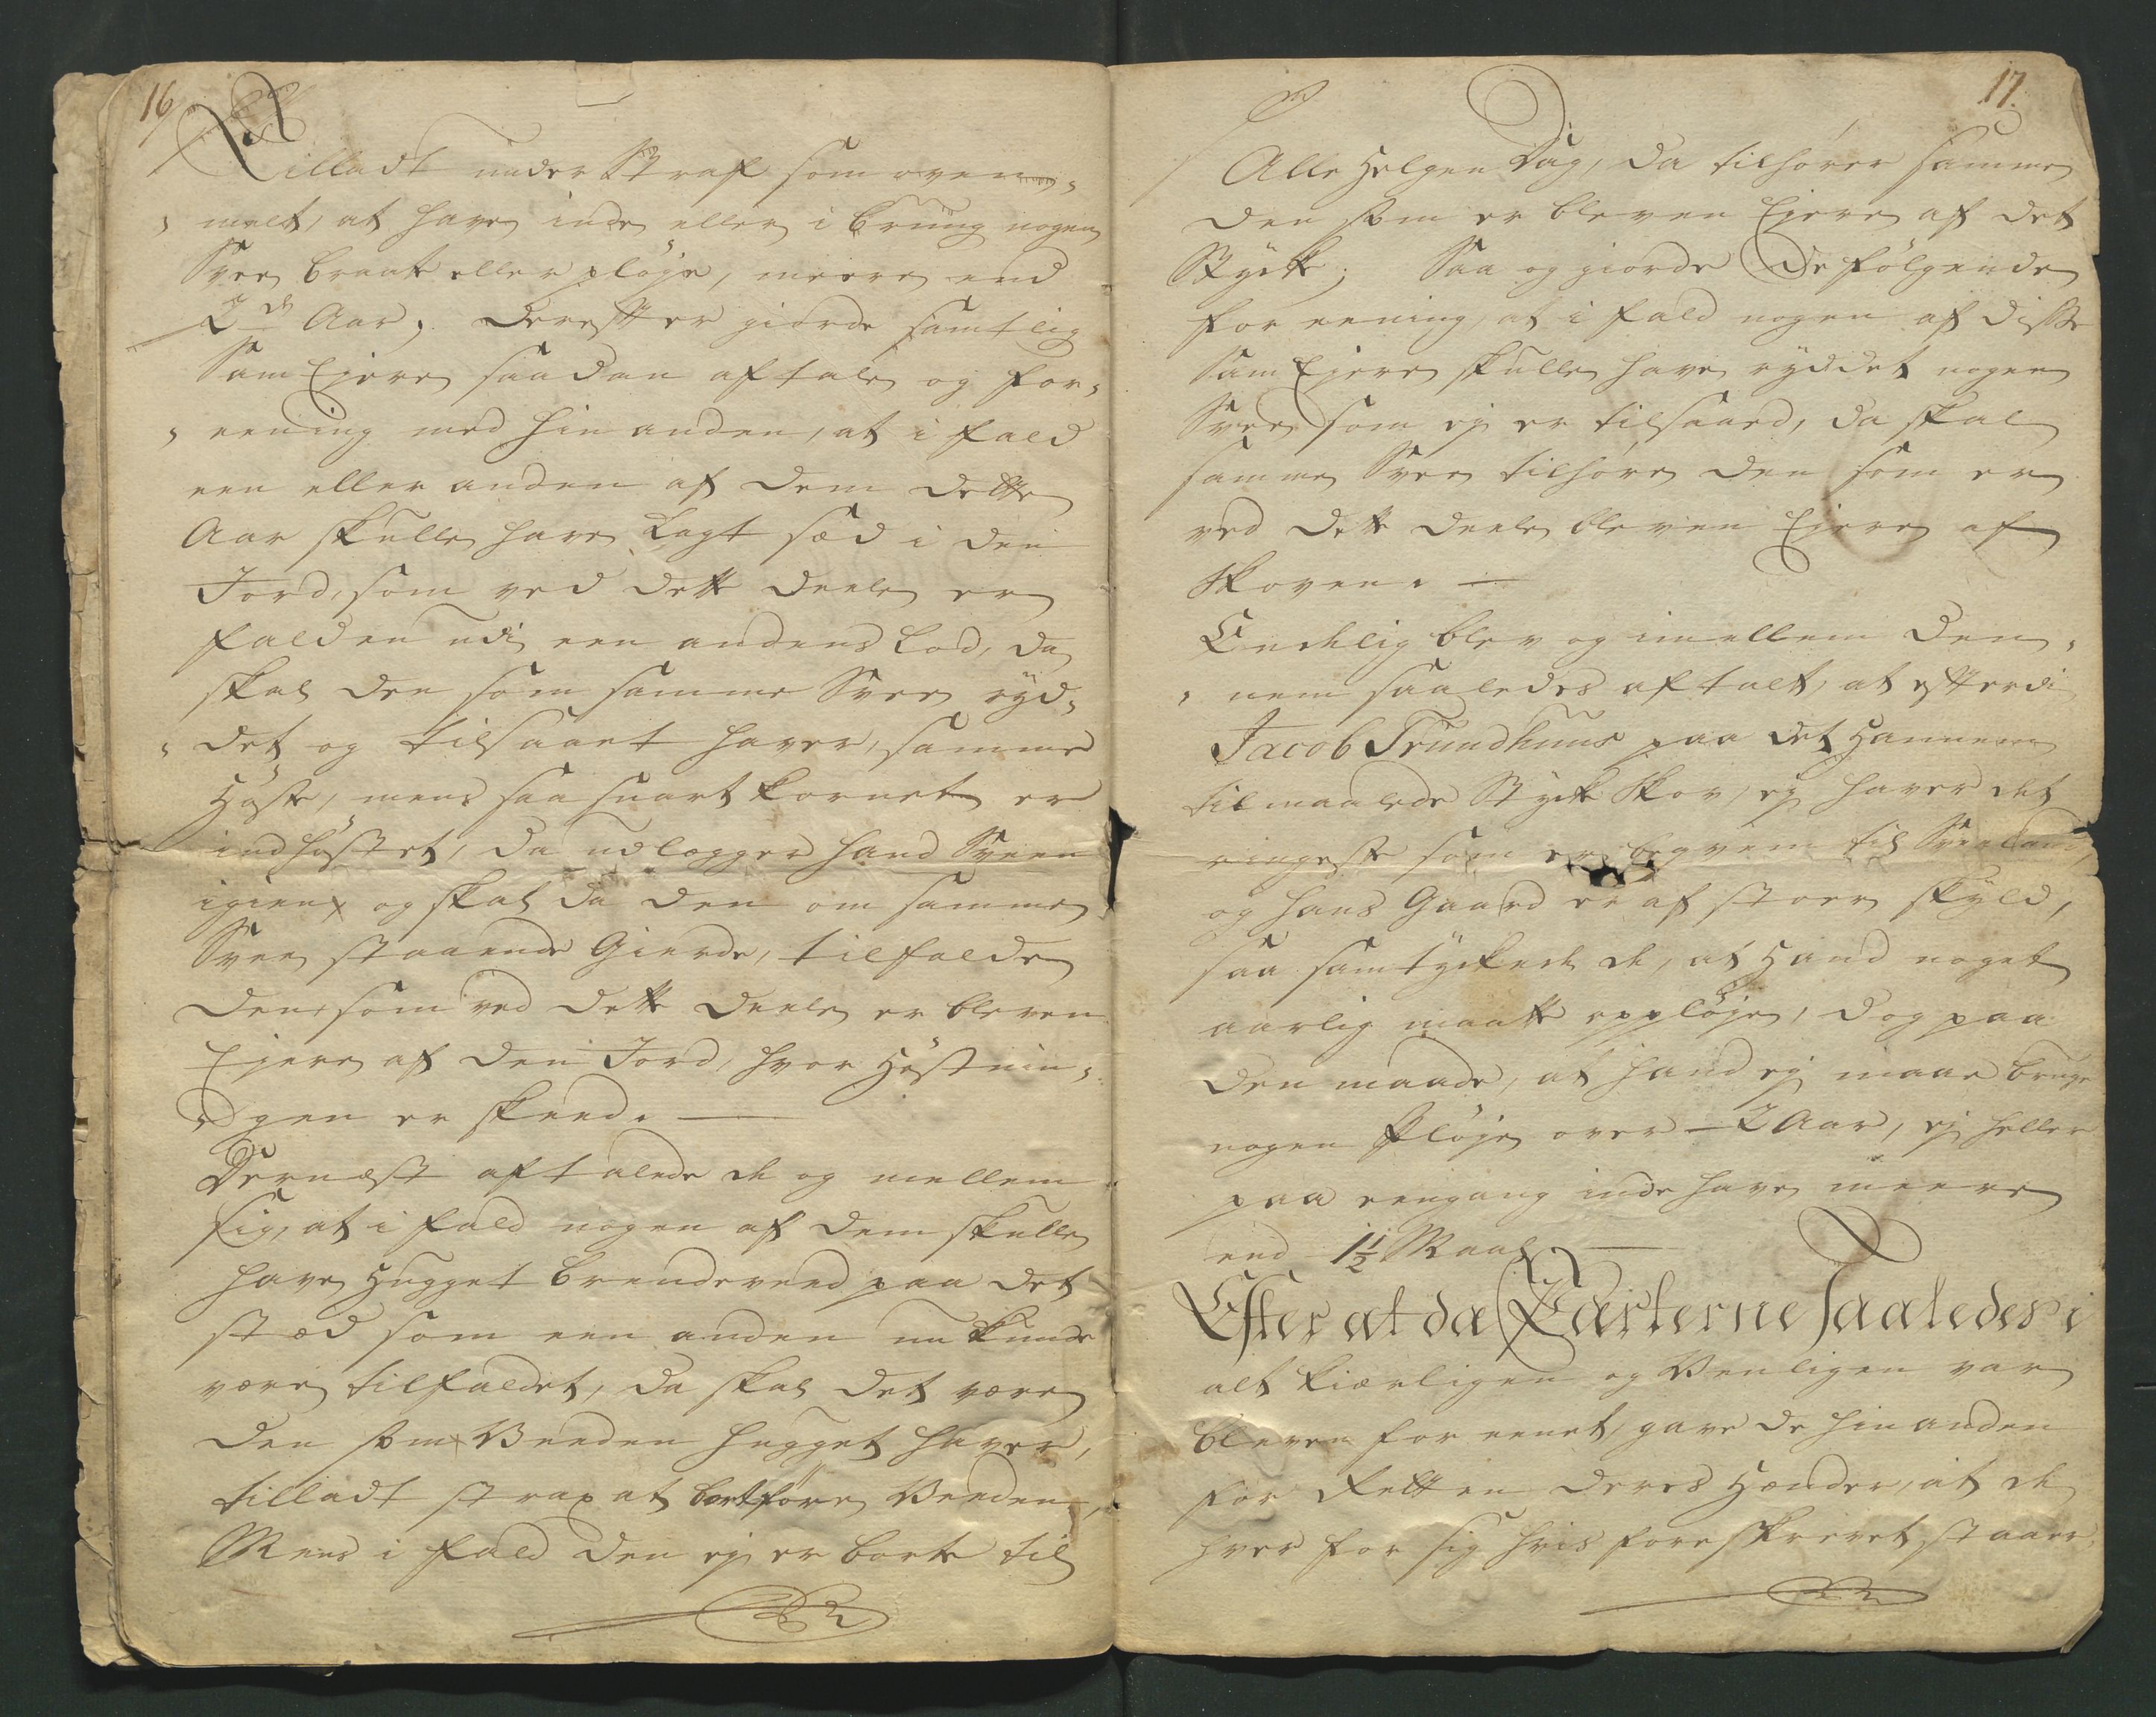 16
Tilladt under Straf som oven-
-melt, at have inde eller i brüüg nogen
Svee braatte eller pløye, meere end
2de Aar, Derefter giorde samtlig
Sam Ejere saadan aftale og for-
-eening med hin anden, at i fald
een eller anden af dem dette
Aar skulle have Lagt sæd i den
Jord, som ved dette deele er
falden udi een andens Lod, da
skal den som samme Svee ryd-
-det og tilsaaet haver, samme
Høste, mens saa snart Kornet er
indhøstet, da udlegger hand Sveen
igien, og skal da den om samme
Svee staaende Gierde, tilfalde
den, som ved dette deele er bleven
Ejere af den Jord, hvor Høstnin-
-gen er skeed. —
Dernæst aftalede de og mellem
sig, at i fald nogen af dem skulle
have Hugget brendeveed paa det
stæd som een anden nu kunde
være tilfaldet, da skal det være
den som Veeden hugget haver,
tilladt strax at bortføre Veeden,
Mens i fald den ej er borte til
17.
Alle Helgen Dag, da tilhører samme
den som er bleven Ejere af det
Stycke; Saa og giorde de følgende
foreening, at i fald nogen af disse
Sam Ejere skulle have ryddet nogen
Svee som ej er tilsaaed, da skal
samme Svee tilhøre den som er
ved dette deele bleven Ejere af
Skoven. —
Endelig blev og imellem den-
-nem saaledes aftalt, at efterdi
Jacob Trundhuus paa det Hannem
tilmaalede Stycke Skov, ej haver det
ringeste som er beqvem til Sveeland,
og hans Gaard er af stoer skyld,
saa samtyckede de, at Hand noget
aarlig maatte oppløye, dog paa
den maade, at hand ej maae bruge
nogen Pløye over 2 Aar, ej heller
paa eengang inde have meere
end 1½ Maal. —
Efter at da Parterne saaledes i
alt kiærligen og Venligen var
bleven foreenet, gave de hinanden
for Retten deres Hænder, at de
hver for sig hvis foreskrevet staaer,